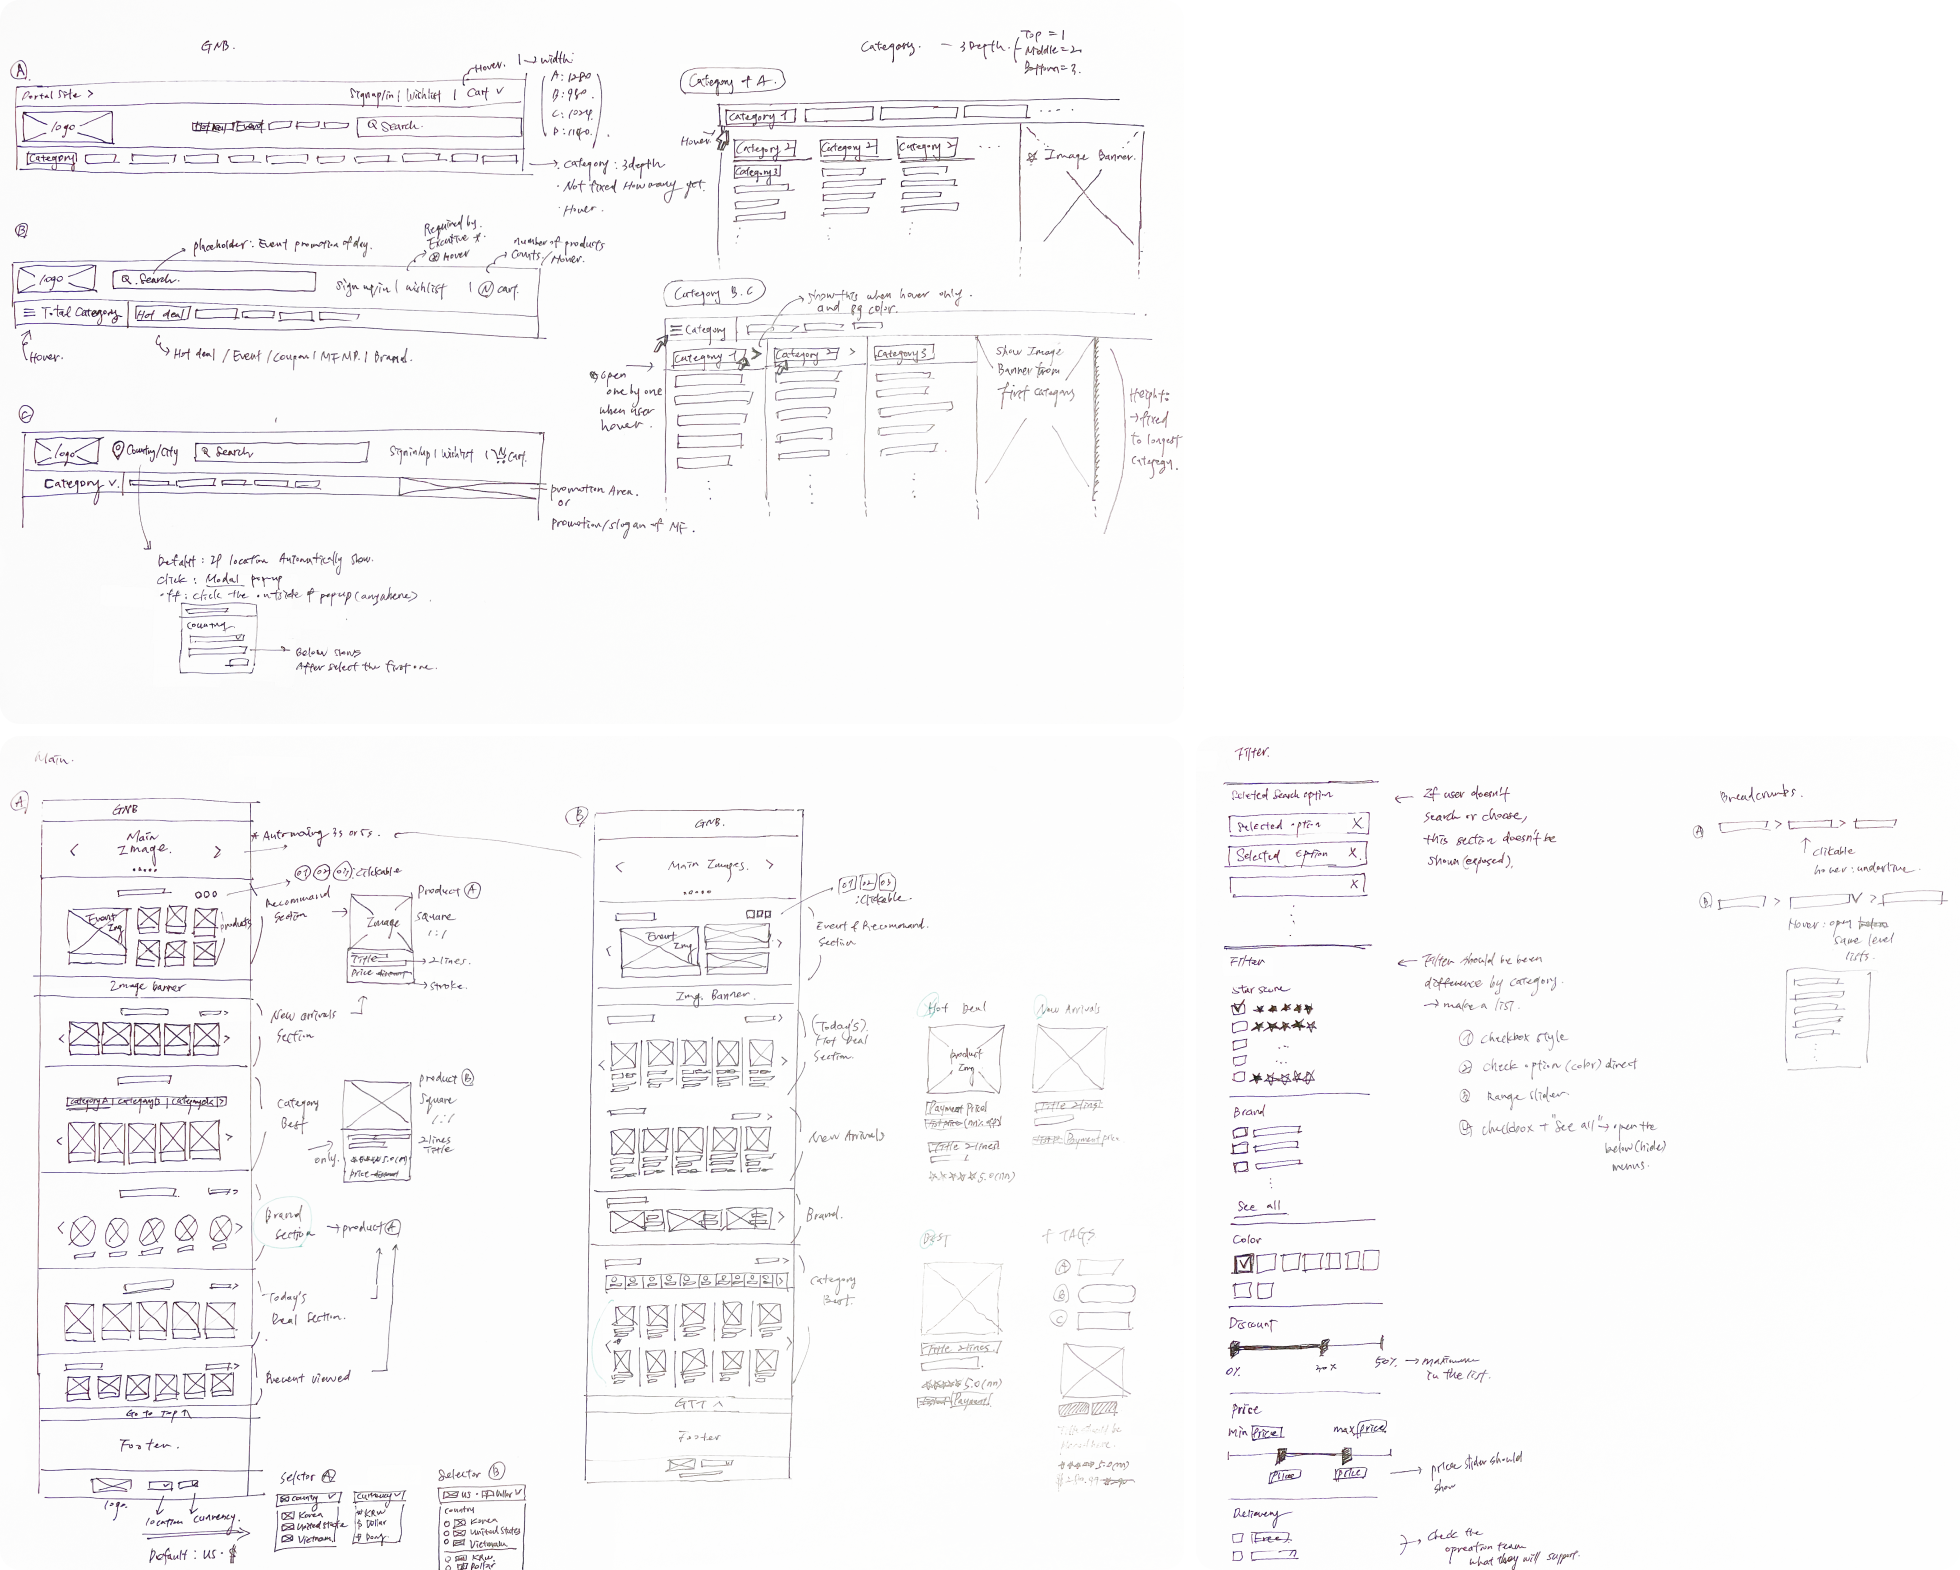 GNB.
A
Hover.
1 → width
A: 1280
B: 980.
C: 1024.
D: 1140.
Portal Site >
Signup/in | Wishlist | Cart ∨
logo
Hot deal Event
Search.
Category
→ Category : 3depth
· Not fixed How many yet.
· Hover.
B
placeholder: Event promotion of day.
Required by.
Excutive *.
Hover
number of products
Counts. / Hover.
logo
Search.
Sign up/in | wishlist | N cart.
≡ Total Category
Hot deal
Hover.
Hot deal / Event / Coupon / MFMP. / Brand.
C
logo
Country/City
Search
Signin/up | Wishlist | Cart.
Category ∨
promotion Area.
or
Promotion/slogan of MF.
Defalut : IP location Automatically show.
Click : Modal popup
off : click the outside of popup (anywhere)
Country
Below shows
After select the first one.
Category. — 3 Depth.
Top = 1
Middle = 2
Bottom = 3.
Category of A.
Category 1
Hover
Category 2
Category 2
Category 2
Category3
Image Banner.
Category B.C
→ show this when hover only.
and Bg color.
≡ Category
Category 1 >
Category 2 >
Category3
Show Image
Banner from
first category
open
one by one
when user
hover.
Height:
→ fixed
to longest
category.
Main.
A
GNB
Main
Image.
* Automoving 3s or 5s.
01 02 03: Clickable
Recommand
Section
Event
Img
products
Image
Title
Price
Product A
square
1:1
→ 2 lines.
→ stroke.
Image banner
New arrivals
Section
Category A | category B | category
Category
Best
product B
Square
1:1
2 lines
Title
only.
5.0 (nn)
price
Brand
Section
→ product A
Today's
Deal Section.
Recent viewed
Go to Top ↑
Footer.
logo.
location
currency.
Default : US · $
Selctor A
country ∨
Korea
United State
Vietnam
Currency ∨
₩ KRW
$ Dollar
Dong
Selector B
US · Dollar ∨
Country
Korea
United States
Vietnam
KRW
Dollar
B
GNB.
Main Images.
01 02 03
: Clickable.
Event
Img
Event & Recommand.
Section
Img. Banner.
(Today's)
Hot Deal
Section
New Arrivals
Brand.
Category
Best.
GTT ^
Footer
Hot Deal
product
Img
Payment Price
Title 2 lines
5.0 (nn)
New Arrivals
Title 2 lines
Payment price
Best
Title 2 lines.
5.0 (nn)
Payment
+ TAGS
A
B
C
5.0 (nn)
Filter.
Seleted Search option
Selected option X
Selected option X.
X
← If user doesn't
search or choose,
this section doesn't be
shown (exposed),
Filter
← Filter should be been
difference by category.
→ make a list.
Star score
① checkbox style
② check option (color) direct
③ Range slider.
④ checkbox + "See all" → open the
below (hide)
menus.
Brand
See all
Color
Discount
0%
30%
50%. → maximum
in the list.
Price
Min Price
max price
Price
Price
→ price slider should
show
Delievery
Free
→ Check the
opreation team
what they will support.
Breadcrumbs.
A
clikable
hover: underline.
B
Hover: open
Same level
lists.